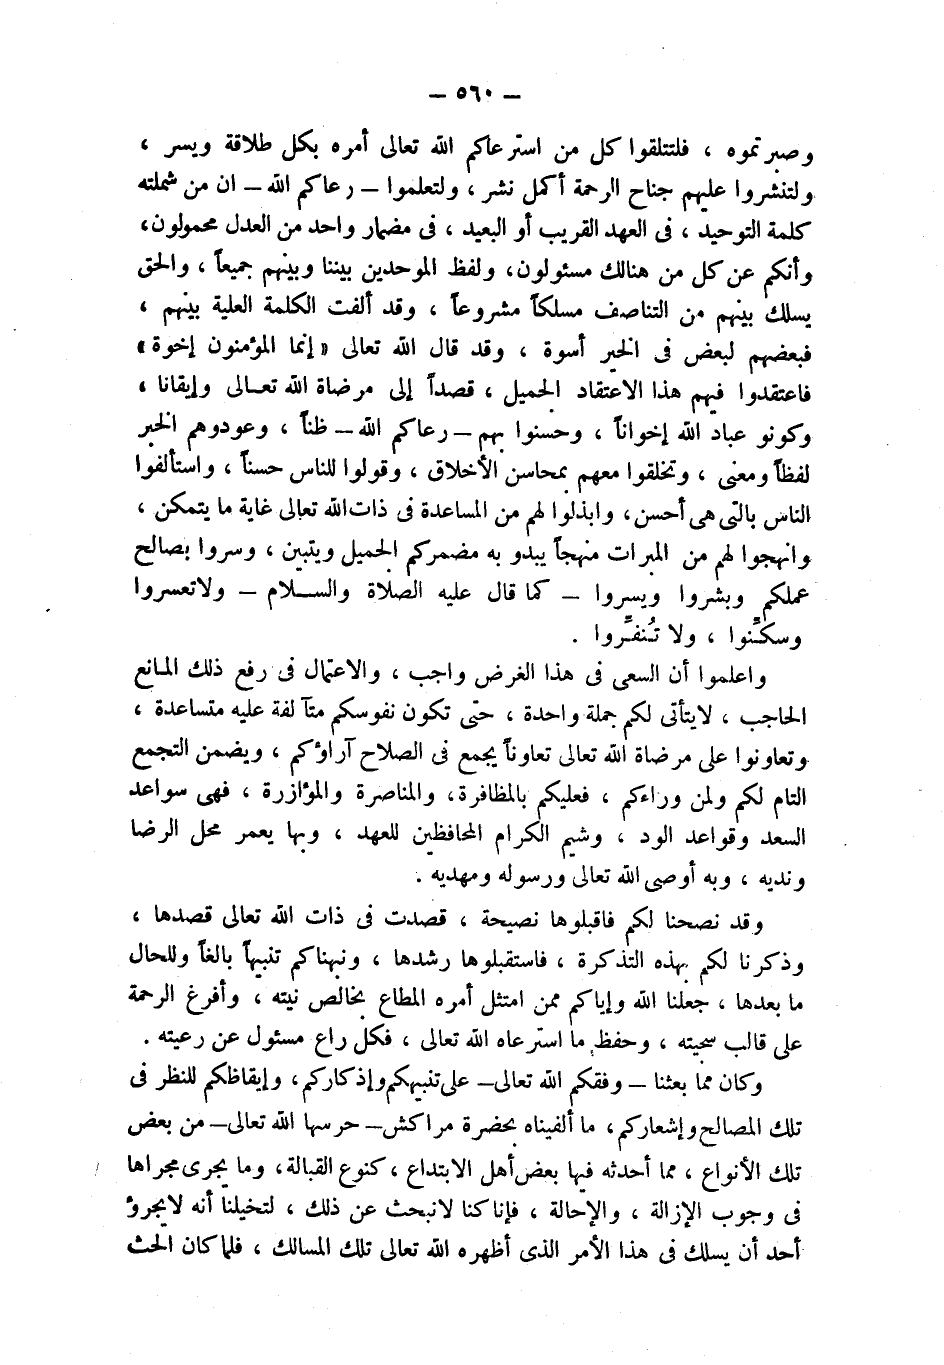 — ٥٦٠ —
وصبرتموه ، فلتتلقوا كل من استرعاكم الله تعالى أمره بكل طلاقة ويسر ،
ولتنشروا عليهم جناح الرحمة أكمل نشر ، ولتعلموا — رعاكم الله — ان من شملته
كلمة التوحيد ، فى العهد القريب أو البعيد ، فى مضمار واحد من العدل محمولون،
وأنكم عن كل من هنالك مسئولون، ولفظ الموحدين بيننا وبينهم جميعاً ، والحق
يسلك بينهم من التناصف مسلكاً مشروعاً ، وقد ألفت الكلمة العلية بينهم ،
فبعضهم لبعض فى الخير أسوة ، وقد قال الله تعالى «إنما المؤمنون إخوة»
فاعتقدوا فيهم هذا الاعتقاد الجميل ، قصداً إلى مرضاة الله تعالى وإيقانا ،
وكونو عباد الله إخواناً ، وحسنوا بهم — رعاكم الله — ظناً ، وعودوهم الخير
لفظاً ومعنى ، وتخلقوا معهم بمحاسن الأخلاق ، وقولوا للناس حسناً ، واستألفوا
الناس بالتى هى أحسن، وابذلوا لهم من المساعدة فى ذات الله تعالى غاية ما يتمكن ،
وانهجوا لهم من المبرات منهجاً يبدو به مضمركم الجميل ويتبين ، وسروا بصالح
عملكم وبشروا ويسروا — كما قال عليه الصلاة والسلام — ولاتعسروا
وسكِّنوا ، ولا تُنفِّروا .
واعلموا أن السعى فى هذا الغرض واجب ، والاعتمال فى رفع ذلك المانع
الحاجب ، لايتأتى لكم جملة واحدة ، حتى تكون نفوسكم متآلفة عليه متساعدة ،
وتعاونوا على مرضاة الله تعالى تعاوناً يجمع فى الصلاح آراؤكم ، ويضمن التجمع
التام لكم ولمن وراءكم ، فعليكم بالمظافرة، والمناصرة والمؤازرة ، فهى سواعد
السعد وقواعد الود ، وشيم الكرام المحافظين للعهد ، وبها يعمر محل الرضا
ونديه ، وبه أوصى الله تعالى ورسوله ومهديه .
وقد نصحنا لكم فاقبلوها نصيحة ، قصدت فى ذات الله تعالى قصدها ،
وذكرنا لكم بهذه التذكرة ، فاستقبلوها رشدها ، ونبهناكم تنبيهاً بالغاً وللحال
ما بعدها ، جعلنا الله وإياكم ممن امتثل أمره المطاع بخالص نيته ، وأفرغ الرحمة
على قالب سجيته ، وحفظ ما استرعاه الله تعالى ، فكل راع مسئول عن رعيته .
وكان مما بعثنا — وفقكم الله تعالى — على تنبيهكم وإذكاركم، وإيقاظكم للنظر فى
تلك المصالح وإشعاركم، ما ألفيناه بحضرة مراكش— حرسها الله تعالى— من بعض
تلك الأنواع ، مما أحدثه فيها بعض أهل الابتداع ، كنوع القبالة، وما يجرى مجراها
فى وجوب الإزالة ، والإحالة ، فإنا كنا لانبحث عن ذلك ، لتخيلنا أنه لايجرؤ
أحد أن يسلك فى هذا الأمر الذى أظهره الله تعالى تلك المسالك ، فلما كان الحث